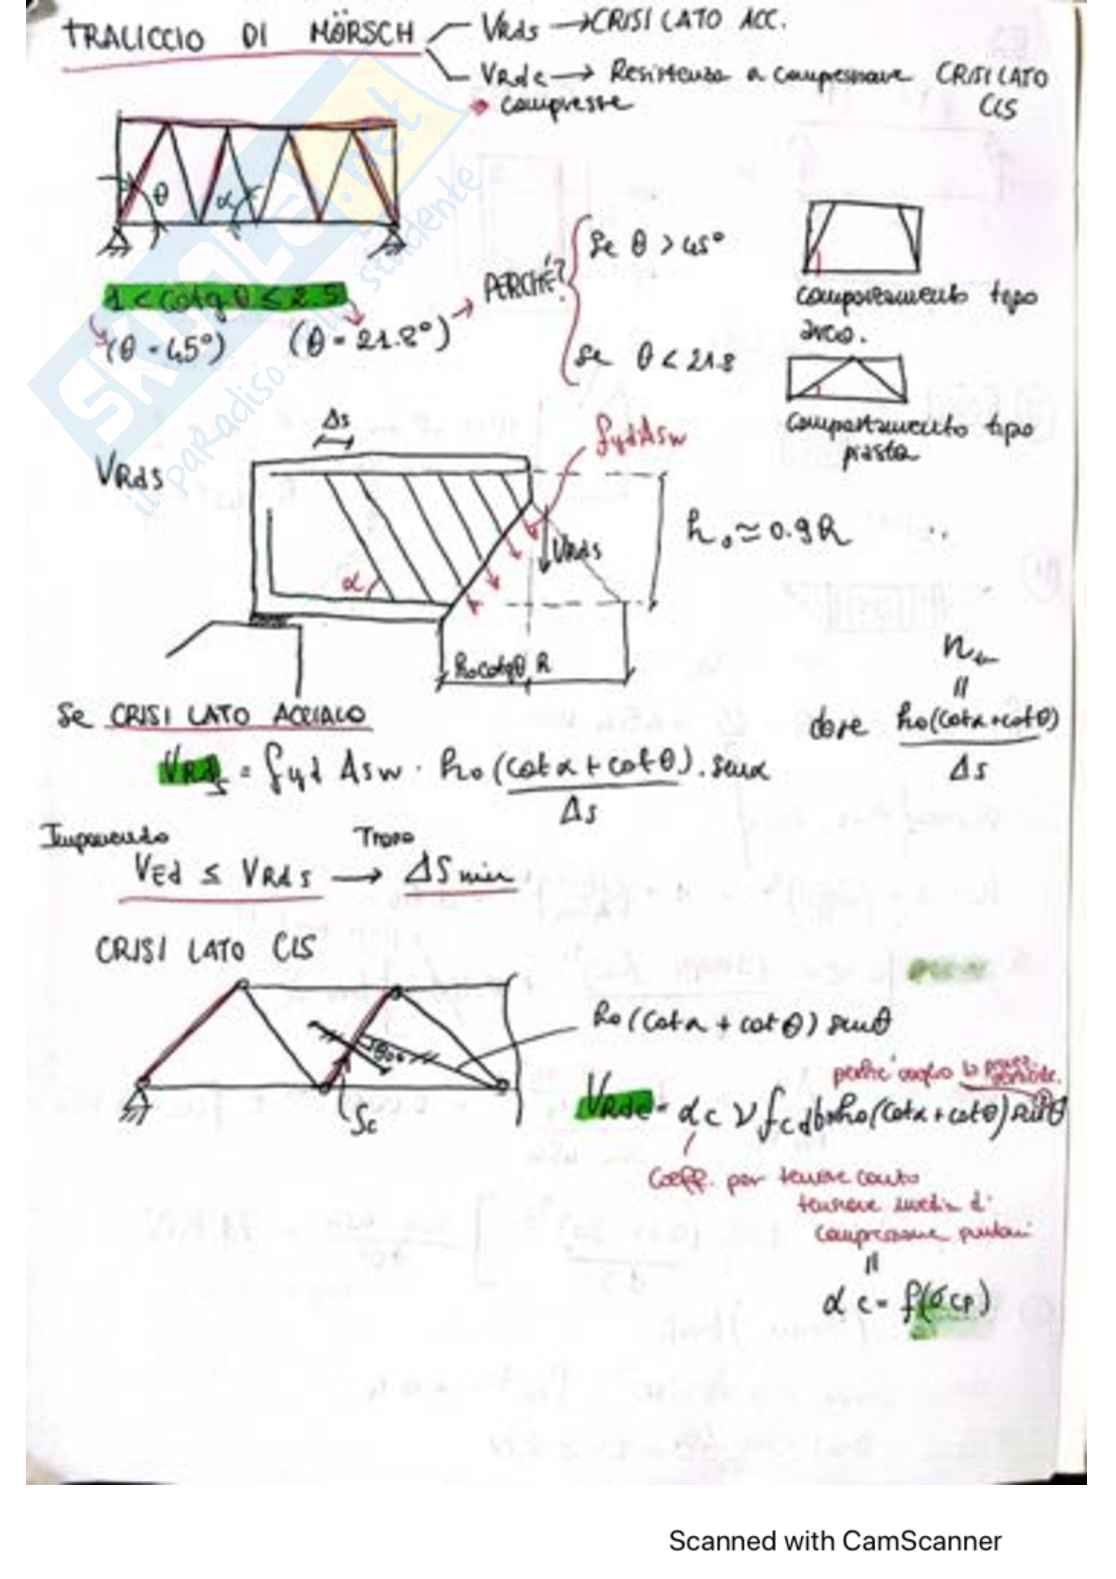 TRALICCIO DI MÖRSCH
VRds → CRISI LATO ACC.
VRdc → Resistenza a compressione CRISI LATO CLS
compresse
θ α
1 < cotg θ ≤ 2.5
(θ = 45°) (θ = 21.8°) → PERCHÉ?
se θ > 45°
comportamento tipo
arco.
se θ < 21.8
comportamento tipo
piastra
SKUOLA.net
il paradiso dello studente
VRds
Δs
fyd Asw
α
VRds
ho ≃ 0.9h
ho cotgθ
Se CRISI LATO ACCIAIO
VRds = fyd Asw · ho (cotα + cotθ) / Δs · senα
dove ho(cotα+cotθ) / Δs = n
Imponendo Trovo
VEd ≤ VRds → ΔSmin
CRISI LATO CLS
90°
Sc
ho (cotα + cotθ) senθ
perché voglio la
VRdc = αc ν fcd b ho (cotα + cotθ) sin²θ
Coeff. per tenere conto
tensione media di
compressione
αc = f(σcp)
Scanned with CamScanner